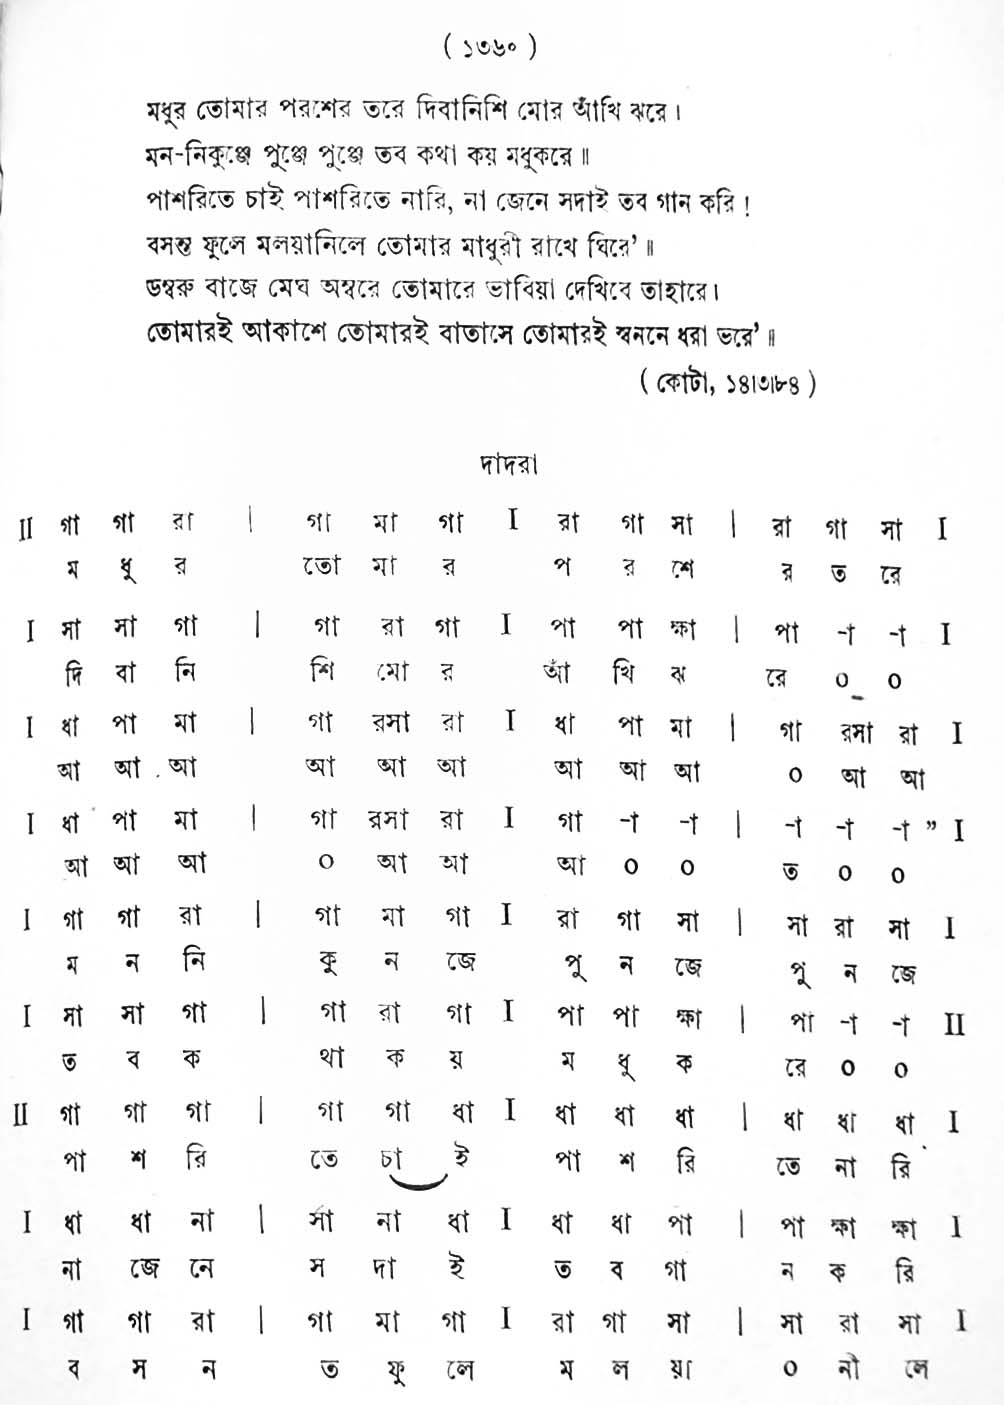 ( ১৩৬০ )
মধুর তোমার পরশের তরে দিবানিশি মোর আঁখি ঝরে ।
মন-নিকুঞ্জে পুঞ্জে পুঞ্জে তব কথা কয় মধুকরে ॥
পাশরিতে চাই পাশরিতে নারি, না জেনে সদাই তব গান করি !
বসন্ত ফুলে মলয়ানিলে তোমার মাধুরী রাখে ঘিরে’ ॥
ডম্বরু বাজে মেঘ অম্বরে তোমারে ভাবিয়া দেখিবে তাহারে ।
তোমারই আকাশে তোমারই বাতাসে তোমারই স্বননে ধরা ভরে’ ॥
( কোটা, ১৪।৩।৮৪ )
দাদরা
II গা গা রা | গা মা গা I রা গা সা | রা গা সা I
ম ধু র তো মা র প র শে র ত রে
I সা সা গা | গা রা গা I পা পা ক্ষা | পা -া -া I
দি বা নি শি মো র আঁ খি ঝ রে ০ ০
I ধা পা মা | গা রসা রা I ধা পা মা | গা রসা রা I
আ আ আ আ আ আ আ আ আ ০ আ আ
I ধা পা মা | গা রসা রা I গা -া -া | -া -া -া ” I
আ আ আ ০ আ আ আ ০ ০ ত ০ ০
I গা গা রা | গা মা গা I রা গা সা | সা রা সা I
ম ন নি কু ন জে পু ন জে পু ন জে
I সা সা গা | গা রা গা I পা পা ক্ষা | পা -া -া II
ত ব ক থা ক য় ম ধু ক রে ০ ০
II গা গা গা | গা গা ধা I ধা ধা ধা | ধা ধা ধা I
পা শ রি তে চা ই পা শ রি তে না রি
I ধা ধা না | র্সা না ধা I ধা ধা পা | পা ক্ষা ক্ষা I
না জে নে স দা ই ত ব গা ন ক রি
I গা গা রা | গা মা গা I রা গা সা | সা রা সা I
ব স ন ত ফু লে ম ল য়া ০ নী লে